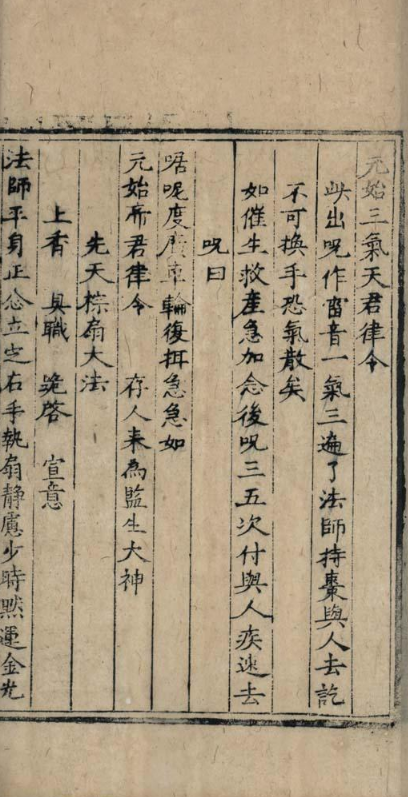 元始三氣天君律令
此出呪作雷音一氣三遍了法師持棗與人去訖
不可換手恐氣散矣
如催生救產急加念後呪三五次付與人疾速去
呪曰
唵呢度厝車輪復拜急急如
元始帝君律令 存人来為監生大神
先天棕扇大法
上香 具職 跪啓 宣意
法師平身正念立定右手執扇静慮少時黙運金光